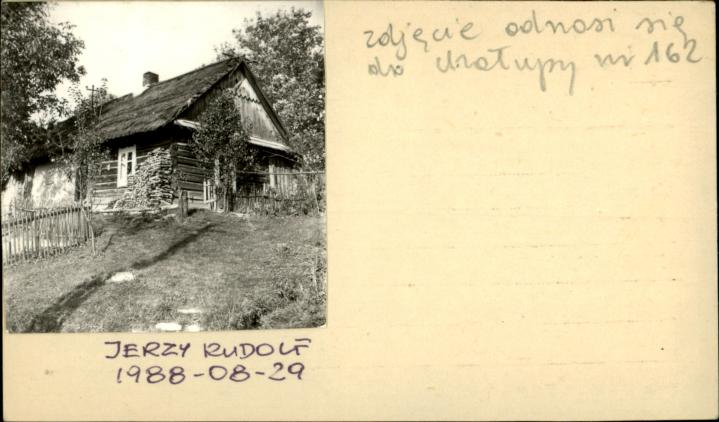 zdjęcie odnosi się
do chałupy nr 162
JERZY RUDOLF
1988-08-29